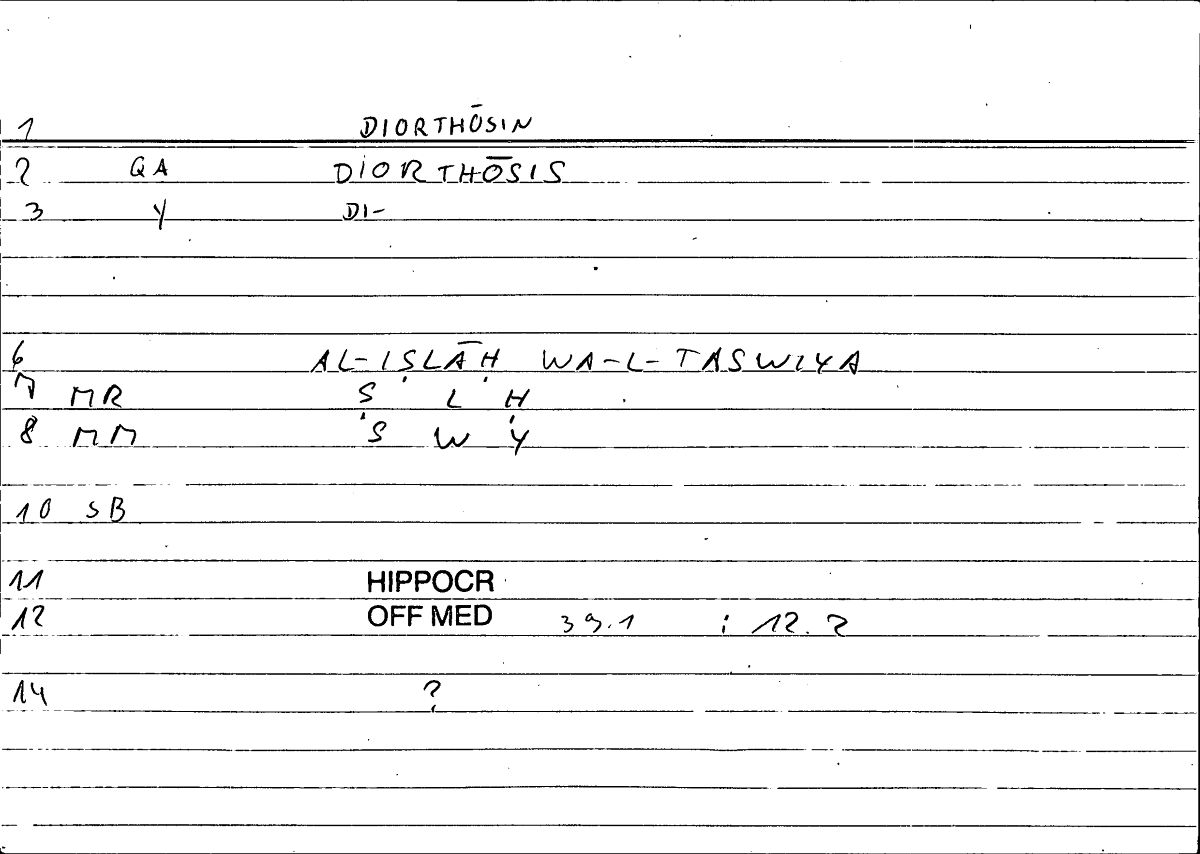 1 DIORTHŌSIN
2 QA DIORTHŌSIS
3 Y DI-
6 AL-IṢLĀḤ WA-L-TASWIYA
7 MR Ṣ L Ḥ
8 MM S W Y
10 SB
11 HIPPOCR
12 OFF MED 39.1 ; 12.2
14 ?